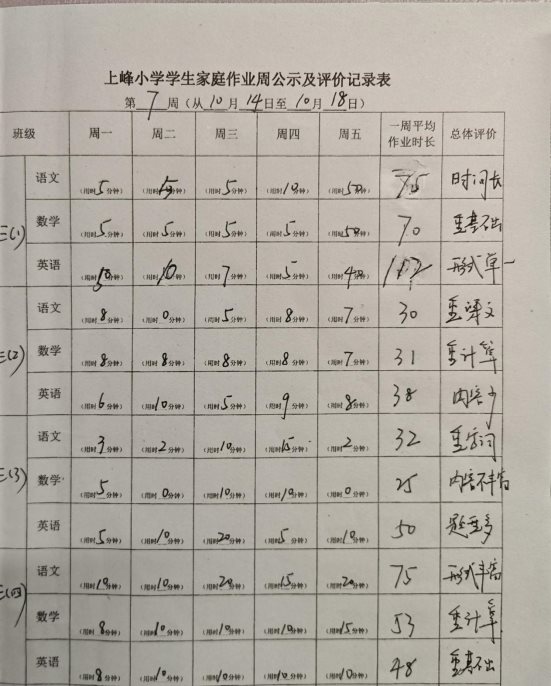 上峰小学学生家庭作业周公示及评价记录表
第 7 周（从 10 月 14 日至 10 月 18 日）
班级 周一 周二 周三 周四 周五 一周平均作业时长 总体评价
三(1) 语文 （用时 5 分钟） （用时 5 分钟） （用时 5 分钟） （用时 10 分钟） （用时 50 分钟） 75 时间长
数学 （用时 5 分钟） （用时 5 分钟） （用时 5 分钟） （用时 5 分钟） （用时 50 分钟） 70 重基础
英语 （用时 分钟） （用时 10 分钟） （用时 7 分钟） （用时 5 分钟） （用时 40 分钟） 形式单一
三(2) 语文 （用时 8 分钟） （用时 0 分钟） （用时 5 分钟） （用时 8 分钟） （用时 7 分钟） 30 重课文
数学 （用时 8 分钟） （用时 8 分钟） （用时 8 分钟） （用时 8 分钟） （用时 7 分钟） 31 重计算
英语 （用时 6 分钟） （用时 10 分钟） （用时 5 分钟） （用时 9 分钟） （用时 8 分钟） 38 内容少
三(3) 语文 （用时 3 分钟） （用时 2 分钟） （用时 10 分钟） （用时 15 分钟） （用时 2 分钟） 32 重字词
数学 （用时 5 分钟） （用时 0 分钟） （用时 10 分钟） （用时 10 分钟） （用时 0 分钟） 25 内容不丰富
英语 （用时 5 分钟） （用时 10 分钟） （用时 20 分钟） （用时 5 分钟） （用时 10 分钟） 50 题量多
三(四) 语文 （用时 10 分钟） （用时 10 分钟） （用时 20 分钟） （用时 15 分钟） （用时 20 分钟） 75 形式丰富
数学 （用时 8 分钟） （用时 10 分钟） （用时 10 分钟） （用时 10 分钟） （用时 15 分钟） 53 重计算
英语 （用时 8 分钟） （用时 10 分钟） （用时 10 分钟） （用时 10 分钟） （用时 10 分钟） 48 重基础